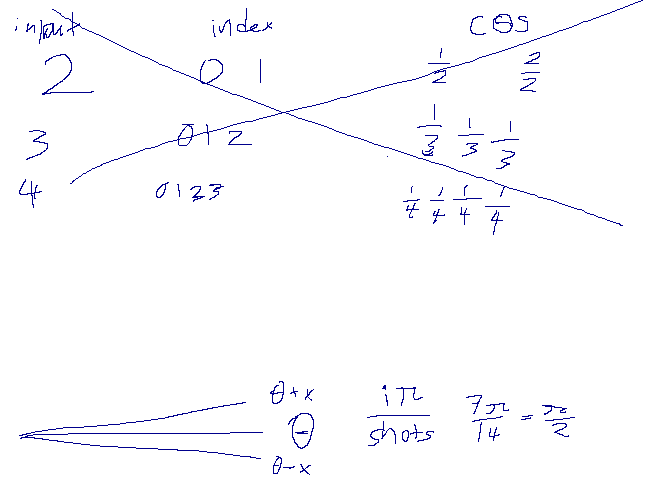 input index COS
2 0 1 1/2 2/2
3 0 1 2 1/3 1/3 1/3
4 0 1 2 3 1/4 1/4 1/4 1/4
θ+x
θ iπ/shots 7π/14 = π/2
θ-x